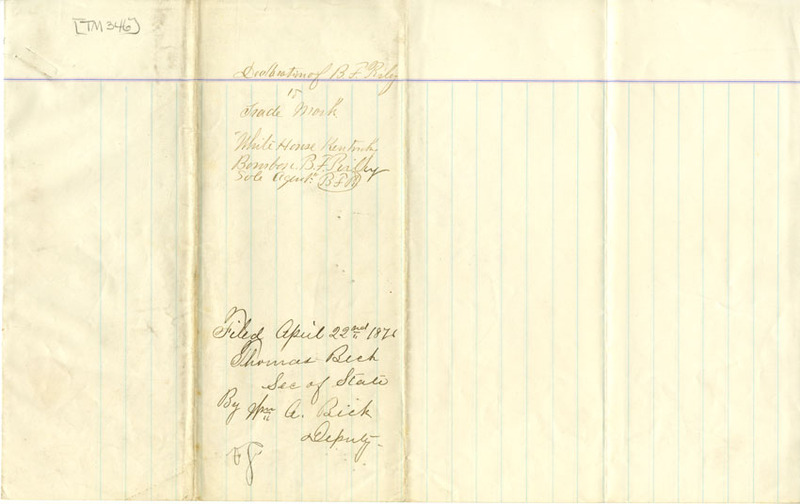 [TM 346]
Declaration of B. F. Reily
to
Trade Mark
"White House Kentucky
Bourbon. B. F. Reilly
Sole Agent" B F R
Filed April 22nd 1876
Thomas Beck
Sec of State
By Wm A. Beck
Deputy